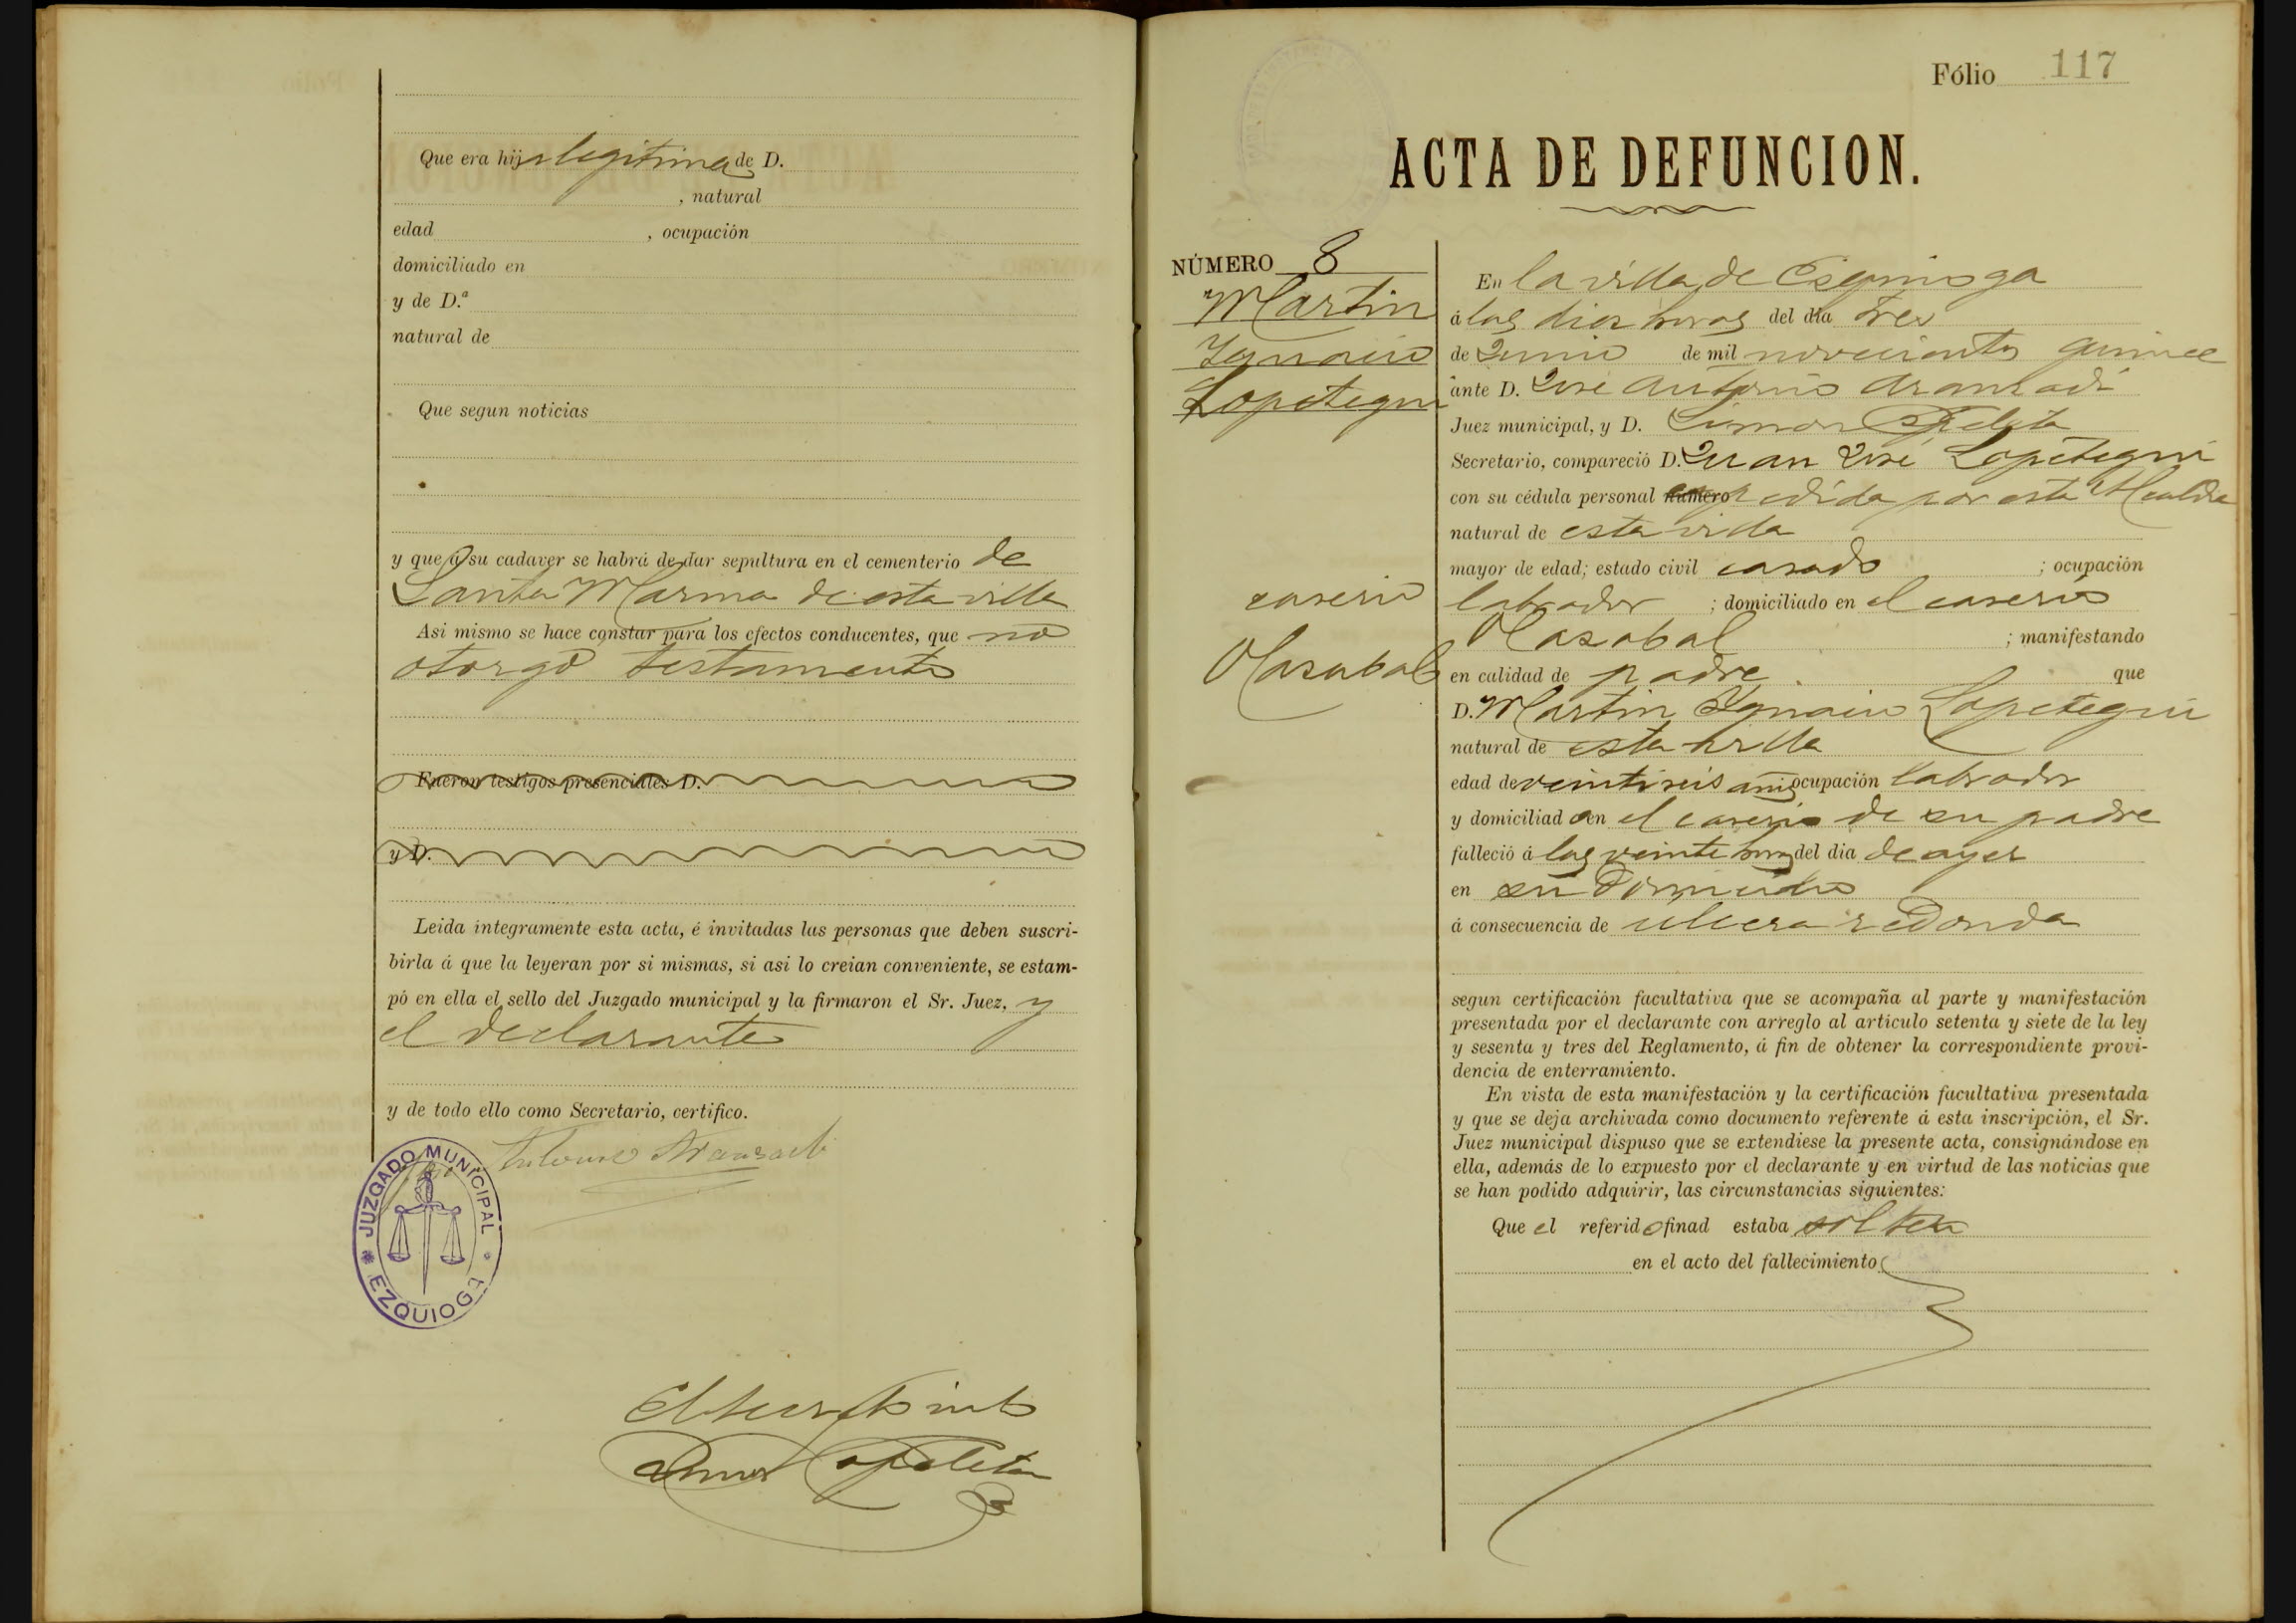 Que era hija legitima de D.
, natural
edad , ocupación
domiciliado en
y de D.ª
natural de
Que segun noticias
y que á su cadaver se habrá de dar sepultura en el cementerio de
Santa Marina de esta villa
Asi mismo se hace constar para los efectos conducentes, que no
otorgó testamento
Fueron testigos presenciales D.
y D.
Leida integramente esta acta, é invitadas las personas que deben suscri-
birla á que la leyeran por si mismas, si asi lo creian conveniente, se estam-
pó en ella el sello del Juzgado municipal y la firmaron el Sr. Juez, y
el declarante
y de todo ello como Secretario, certifico.
Antonio Aranzadi
JUZGADO MUNICIPAL
EZQUIOGA
Fólio 117
ACTA DE DEFUNCION.
NÚMERO 8
Martin
Ygnacio
Lopetegui
caserio
Olazabal
En la villa de Esquioga
á las diez horas del dia tres
de Junio de mil novecientos quince
ante D. José Antonio Aranzadi
Juez municipal, y D. Simon
Secretario, compareció D. Juan José Lopetegui
con su cédula personal número expedida por esta Alcaldia
natural de esta villa
mayor de edad; estado civil casado ; ocupación
labrador ; domiciliado en el caserio
Olazabal ; manifestando
en calidad de padre que
D. Martin Ygnacio Lopetegui
natural de esta villa
edad de veintiseis años ocupación labrador
y domiciliado en el caserio de su padre
falleció á las veinte horas del dia de ayer
en su domicilio
á consecuencia de ulcera redonda
segun certificación facultativa que se acompaña al parte y manifestación
presentada por el declarante con arreglo al articulo setenta y siete de la ley
y sesenta y tres del Reglamento, á fin de obtener la correspondiente provi-
dencia de enterramiento.
En vista de esta manifestación y la certificación facultativa presentada
y que se deja archivada como documento referente á esta inscripción, el Sr.
Juez municipal dispuso que se extendiese la presente acta, consignándose en
ella, además de lo expuesto por el declarante y en virtud de las noticias que
se han podido adquirir, las circunstancias siguientes:
Que el referido finad estaba soltero
en el acto del fallecimiento